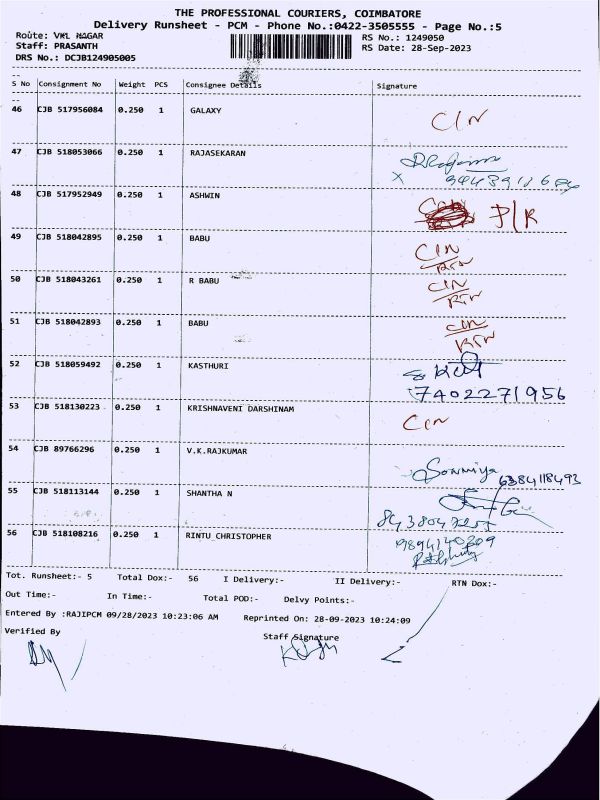 THE PROFESSIONAL COURIERS, COIMBATORE
Delivery Runsheet - PCM - Phone No.:0422-3505555 - Page No.:5
Route: VKL NAGAR
RS No.: 1249050
Staff: PRASANTH
RS Date: 28-Sep-2023
DRS No.: DCJB124905005
S No Consignment No Weight PCS Consignee Details Signature
46 CJB 517956084 0.250 1 GALAXY CIN
47 CJB 518053066 0.250 1 RAJASEKARAN
48 CJB 517952949 0.250 1 ASHWIN P/R
49 CJB 518042895 0.250 1 BABU CIN
RTN
50 CJB 518043261 0.250 1 R BABU CIN
RTN
51 CJB 518042893 0.250 1 BABU CIN
RTN
52 CJB 518059492 0.250 1 KASTHURI
7402271956
53 CJB 518130223 0.250 1 KRISHNAVENI DARSHINAM CIN
54 CJB 89766296 0.250 1 V.K.RAJKUMAR
Sowmiya 6384118493
55 CJB 518113144 0.250 1 SHANTHA N
56 CJB 518108216 0.250 1 RINTU CHRISTOPHER 9894140309
Tot. Runsheet:- 5 Total Dox:- 56 I Delivery:- II Delivery:- RTN Dox:-
Out Time:- In Time:- Total POD:- Delvy Points:-
Entered By :RAJIPCM 09/28/2023 10:23:06 AM Reprinted On: 28-09-2023 10:24:09
Verified By Staff Signature